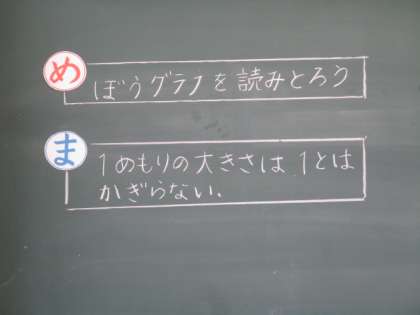 め
ぼうグラフを読みとろう
ま
1めもりの大きさは1とは
かぎらない.